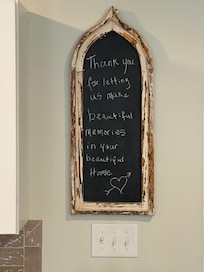 Thank you
for letting
us make
beautiful
memories
in your
beautiful
Home